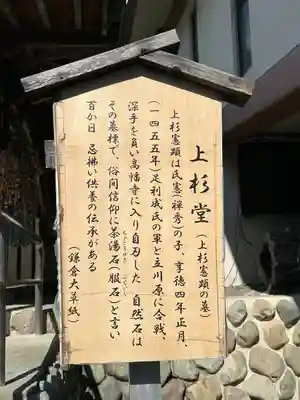 上杉堂(上杉憲顕の墓)
上杉憲顕は氏憲(禅秀)の子、享徳四年正月、
(一四五五年)足利成氏の軍と立川原に合戦、
深手を負い高幡寺に入り自刃した 自然石は
その墓標で、俗間信仰に茶湯石(服石)と言い
百か日 忌払い供養の伝承がある
(鎌倉大草紙)